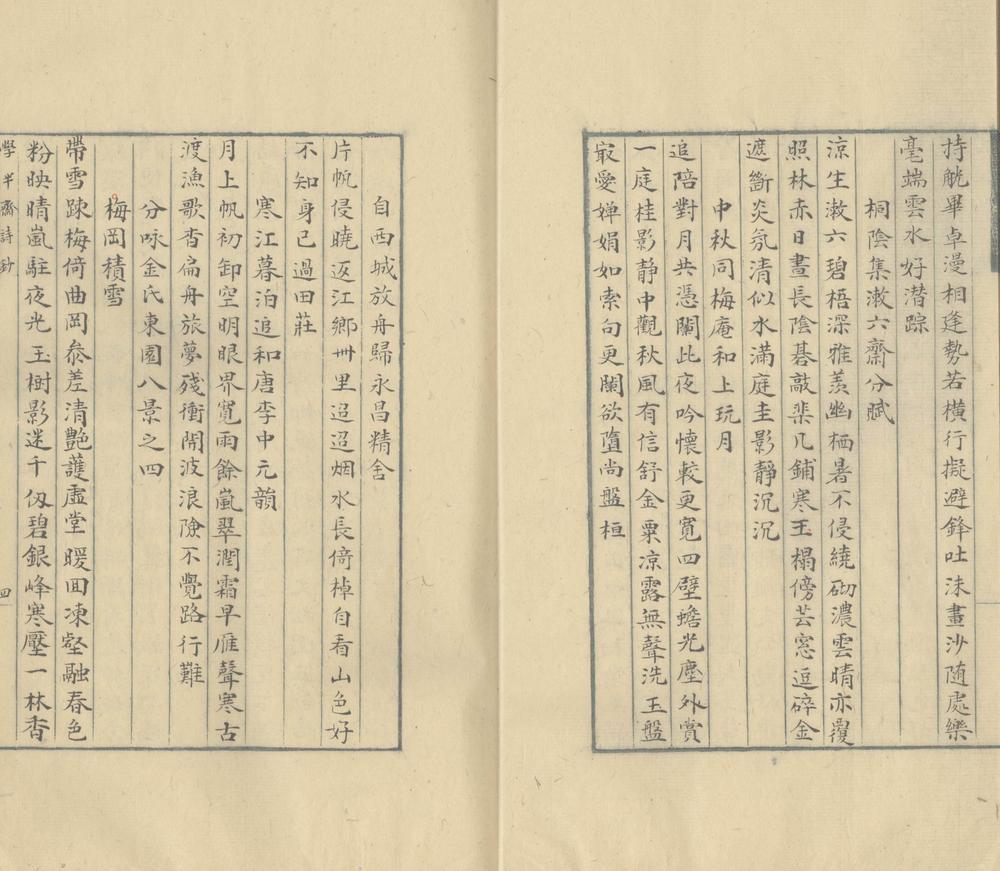 持觥畢卓漫相逢勢若横行擬避鋒吐沫畫沙随處樂
毫端雲水好潜踪
桐陰集漱六齋分賦
涼生漱六碧梧深雅羨幽栖暑不侵繞砌濃雲晴亦覆
照林赤日晝長陰碁敲棐几鋪寒玉榻傍芸窓逗碎金
遮斷炎氛清似水滿庭圭影静沉沉
中秋同梅庵和上玩月
追陪對月共憑闌此夜吟懷較更寛四壁蟾光塵外賞
一庭桂影静中觀秋風有信舒金粟凉露無聲洗玉盤
最愛嬋娟如索句更闌欲墮尚盤桓
自西城放舟歸永昌精舍
片帆侵曉返江鄉卅里迢迢烟水長倚棹自看山色好
不知身已過田莊
寒江暮泊追和唐李中元韻
月上帆初卸空明眼界寛雨餘嵐翠潤霜早雁聲寒古
渡漁歌杳扁舟旅夢殘衝開波浪險不覺路行難
分咏金氏東園八景之四
梅岡積雪
帶雪踈梅倚曲岡叅差清艷護虚堂暖回凍壑融春色
粉映晴嵐駐夜光玉樹影迷千仭碧銀峰寒壓一林香
學半齋詩鈔
四